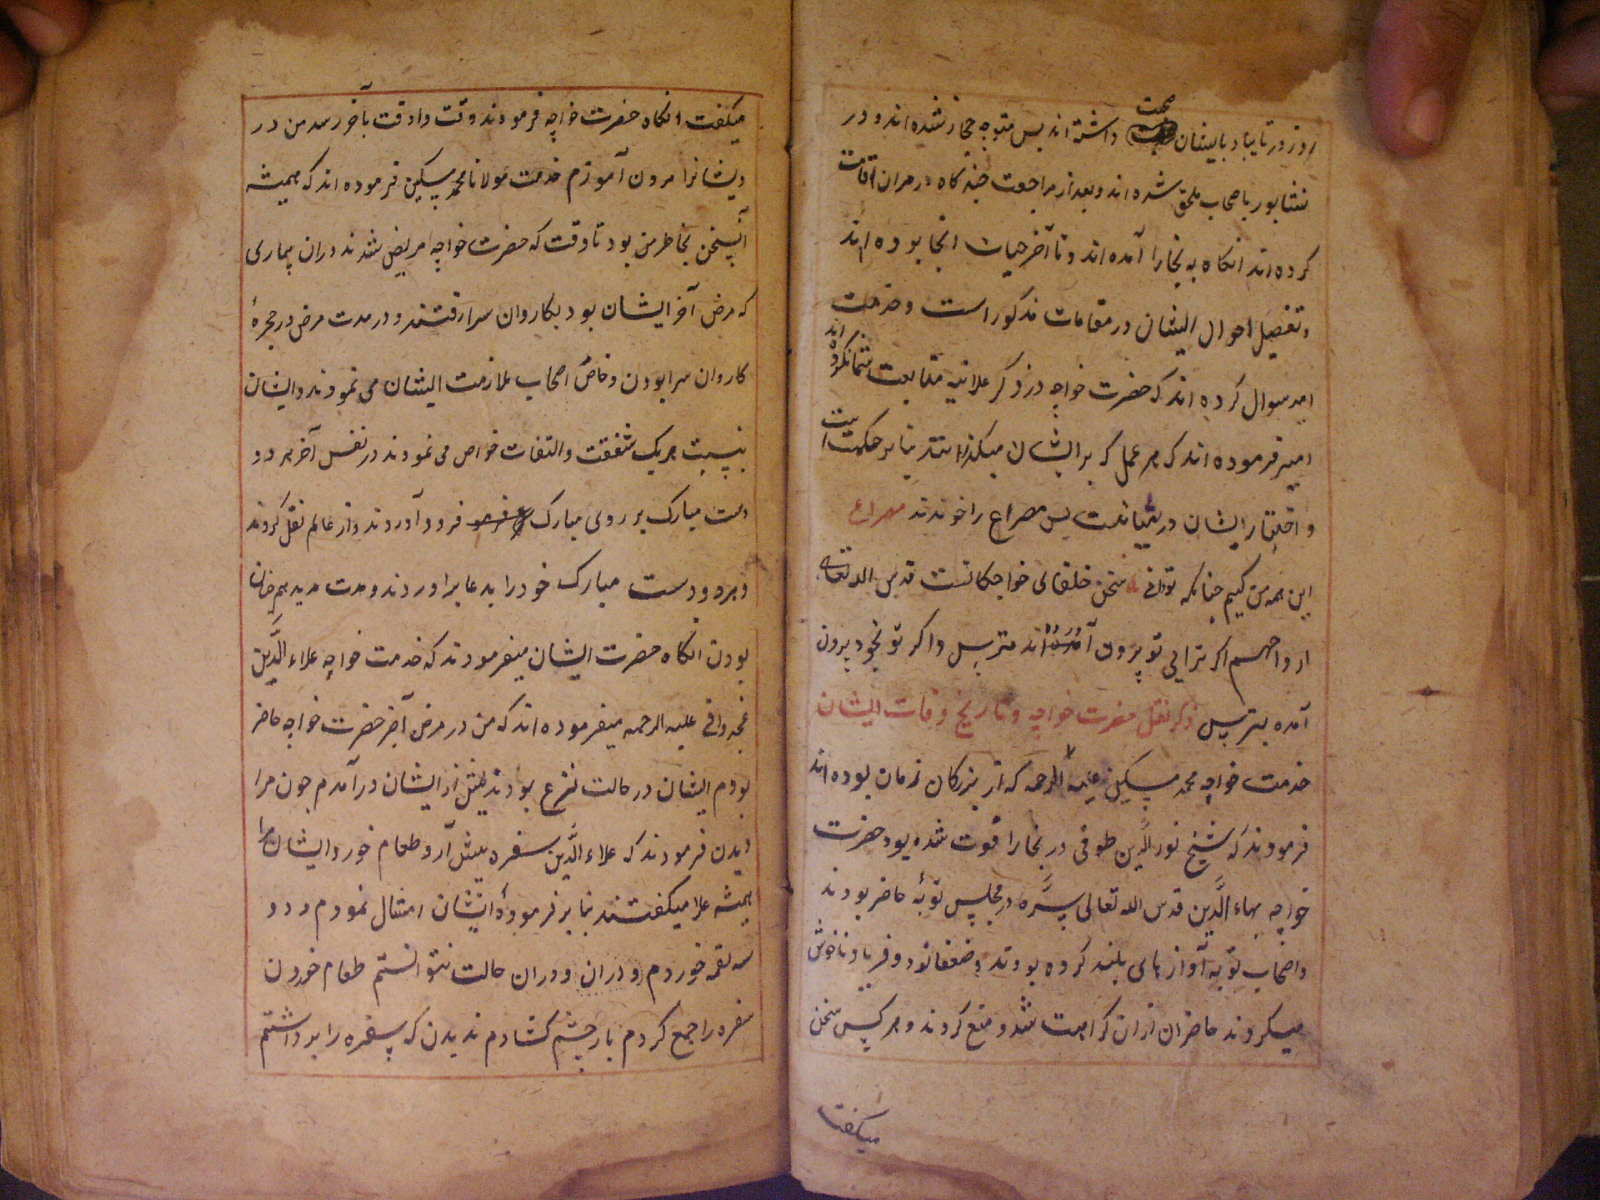 روز در تایباد با ایشان صحبت داشته اند پس متوجه حجاز شده اند و در
نشابور باصحاب ملحق شده اند و بعد از مراجعت چند کاه در مرو ان اقامت
کرده اند انکاه به بخارا آمده اند و تا آخر حیات انجا بوده اند
و تفصیل احوال ایشان در مقامات مذکور است و خدمت
امیر سوال کرده اند که حضرت خواجه در ذکر علانیه متابعت شما نکرده اند
امیر فرموده اند که هر عمل که بر ایشان میکذرانند بنا بر حکمت است
و اختیار ایشان در میانه نیست پس مصراع را خواندند مصراع
این همه من کیم چنانکه تو دانی سخن خلفای خواجکانست قدس الله تعالی
ارواحهم اکر ترا بی تو بیرون آورده اند مترس و اکر تو بخود بیرون
آمده بترس ذکر نقل حضرت خواجه و تاریخ وفات ایشان
خدمت خواجه محمد مسکین علیه الرحمه که از بزرکان زمان بوده اند
فرمودند که شیخ نور الدین طوفی در بخارا فوت شده بود حضرت
خواجه بهاء الدین قدس الله تعالی سره در مجلس توبه حاضر بودند
و اصحاب توبه آواز های بلند کرده بودند و ضعفا نود و فریاد ناخوش
میکردند حاضران از ان کراهت شد و منع کردند و هر کس سخن
میکفت
میکفت انکاه حضرت خواجه فرمودند وقت دا وقت بآخر رسد من در
ویشانرا مردن آموزم خدمت مولانا محمد مسکین فرموده اند که همیشه
این سخن بخاطر من بود تا وقت که حضرت خواجه مریض شدند در ان بیماری
که مرض آخر ایشان بود بکاروان سرا رفتند و در مدت مرض در حجرهٔ
کاروان سرا بودن و خاص اصحاب ملازمت ایشان می نمودند و ایشان
بنسبت هر یک شفقت و التفات خواص می نمودند در نفس آخر هر دو
دست مبارک بر روی مبارک فرود آوردند و از عالم نقل کردند
و هر دو دست مبارک خود را بدعا براوردند و مدت مدید همچنان
بودن انکاه حضرت ایشان میفرمودند که خدمت خواجه علاء الدین
غجدوانی علیه الرحمه میفرموده اند که من در مرض آخر حضرت خواجه حاضر
بودم ایشان در حالت نزع بودند پیش از ایشان درآمدم چون مرا
دیدن فرمودند که علاء الدین سفره پیش آر و طعام خور و ایشان مرا
همیشه علا میکفتند بنا بر فرمودهٔ ایشان امتثال نمودم و دو
سه لقمه خوردم و دران و دران حالت نتوانستم طعام خوردن
سفره را جمع کردم باز چشم کشادم ندیدن که سفره را برداشتم